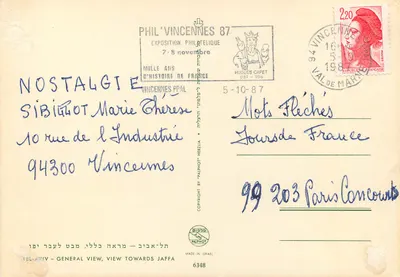 PHIL'VINCENNES 87
EXPOSITION PHILATELIQUE
7-8 novembre
MILLE ANS
D'HISTOIRE DE FRANCE
VINCENNES PPAL
HUGUES CAPET
987 - 996
94 VINCENNES
16
5
198
VAL DE MARNE
2,20
5-10-87
NOSTALGIE
SIBILLOT Marie Thérèse
10 rue de l'Industrie
94300 Vincennes
Mots Fléchés
Jours de France
99 203 Paris Concours
תל-אביב – מראה כללי, מבט לעבר יפו
TEL-AVIV – GENERAL VIEW, VIEW TOWARDS JAFFA
MADE IN ISRAEL
6388